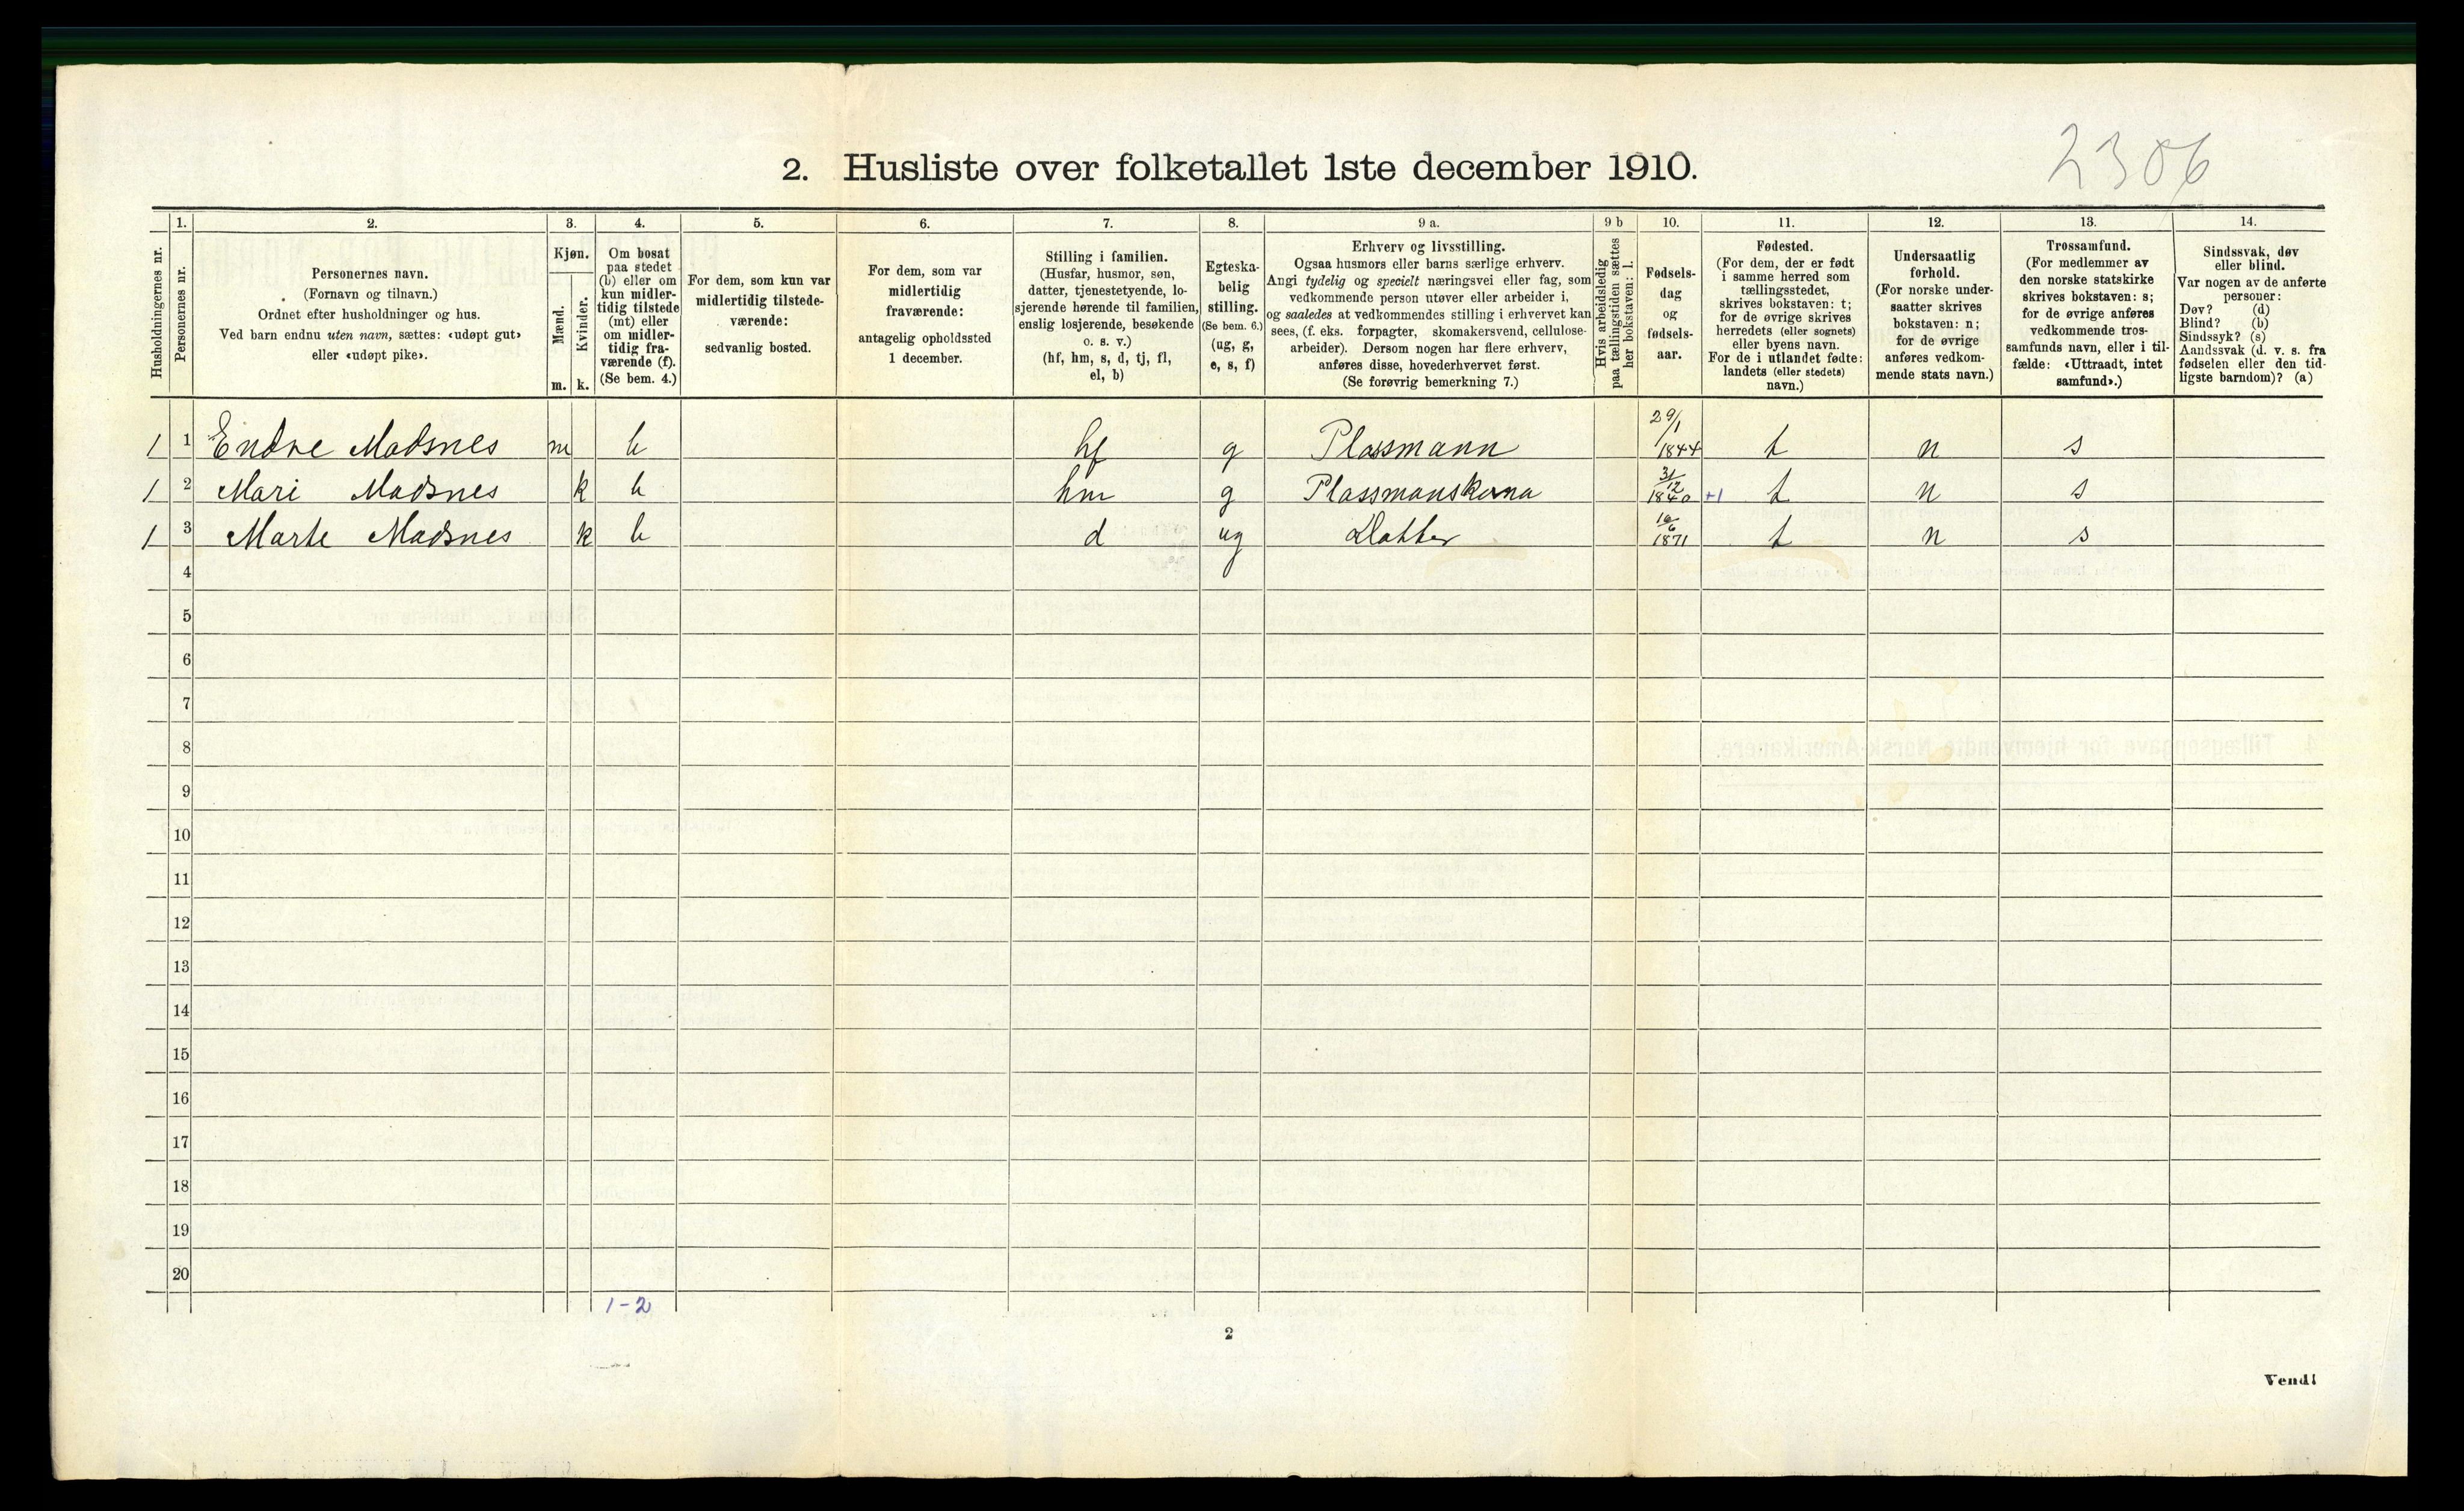 2306
2. Husliste over folketallet 1ste december 1910.
Husholdningernes nr.
1.
Personernes nr.
2.
Personernes navn.
(Fornavn og tilnavn.)
Ordnet efter husholdninger og hus.
Ved barn endnu uten navn, sættes: «udøpt gut»
eller «udøpt pike».
3.
Kjøn.
Mænd.
m.
Kvinder.
k.
4.
Om bosat
paa stedet
(b) eller om
kun midler-
tidig tilstede
(mt) eller
om midler-
tidig fra-
værende (f).
(Se bem. 4.)
5.
For dem, som kun var
midlertidig tilstede-
værende:
sedvanlig bosted.
6.
For dem, som var
midlertidig
fraværende:
antagelig opholdssted
1 december.
7.
Stilling i familien.
(Husfar, husmor, søn,
datter, tjenestetyende, lo-
sjerende hørende til familien,
enslig losjerende, besøkende
o. s. v.)
(hf, hm, s, d, tj, fl,
el, b)
8.
Egteska-
belig
stilling.
(Se bem. 6.)
(ug, g,
e, s, f)
9 a.
Erhverv og livsstilling.
Ogsaa husmors eller barns særlige erhverv.
Angi tydelig og specielt næringsvei eller fag, som
vedkommende person utøver eller arbeider i,
og saaledes at vedkommendes stilling i erhvervet kan
sees, (f. eks. forpagter, skomakersvend, cellulose-
arbeider). Dersom nogen har flere erhverv,
anføres disse, hovederhvervet først.
(Se forøvrig bemerkning 7.)
9 b
Hvis arbeidsledig
paa tællingstiden sættes
her bokstaven: l.
10.
Fødsels-
dag
og
fødsels-
aar.
11.
Fødested.
(For dem, der er født
i samme herred som
tællingsstedet,
skrives bokstaven: t;
for de øvrige skrives
herredets (eller sognets)
eller byens navn.
For de i utlandet fødte:
landets (eller stedets)
navn.)
12.
Undersaatlig
forhold.
(For norske under-
saatter skrives
bokstaven: n;
for de øvrige
anføres vedkom-
mende stats navn.)
13.
Trossamfund.
(For medlemmer av
den norske statskirke
skrives bokstaven: s;
for de øvrige anføres
vedkommende tros-
samfunds navn, eller i til-
fælde: «Uttraadt, intet
samfund».)
14.
Sindssvak, døv
eller blind.
Var nogen av de anførte
personer:
Døv? (d)
Blind? (b)
Sindsyk? (s)
Aandssvak (d. v. s. fra
fødselen eller den tid-
ligste barndom)? (a)
1 1 Endre Madsnes m b hf g Plassmann 29/1 1844 t n s
1 2 Mari Madsnes k b hm g Plassmanskona 31/12 1840 +1 t n s
1 3 Marte Madsnes k b d ug Datter 16/6 1871 t n s
4
5
6
7
8
9
10
11
12
13
14
15
16
17
18
19
20
1-2
2
Vend!